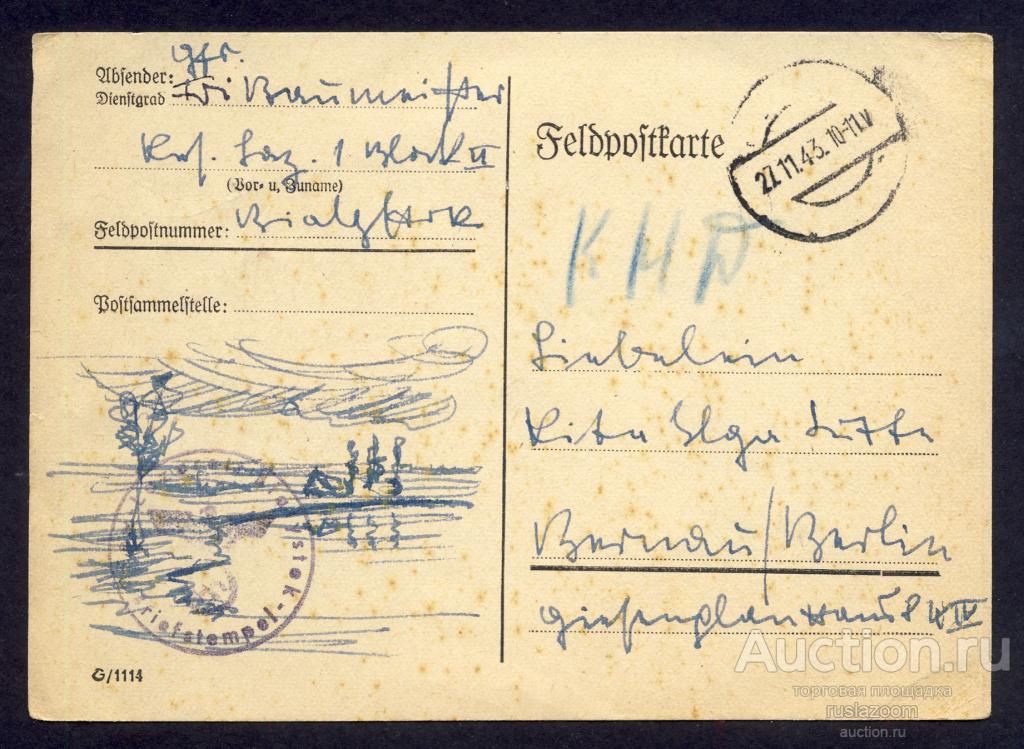 Gfr.
Absender:
Dienstgrad Baumeister
Res. Laz. 1 Block II
(Vor- u. Zuname)
Feldpostnummer: Bialystok
Postsammelstelle:
G/1114
Feldpostkarte
27.11.43. 10-11.V
KHD
Rita Elga
Bernau/Berlin
riefstempel
Auction.ru
торговая площадка
ruslazoom
auction.ru